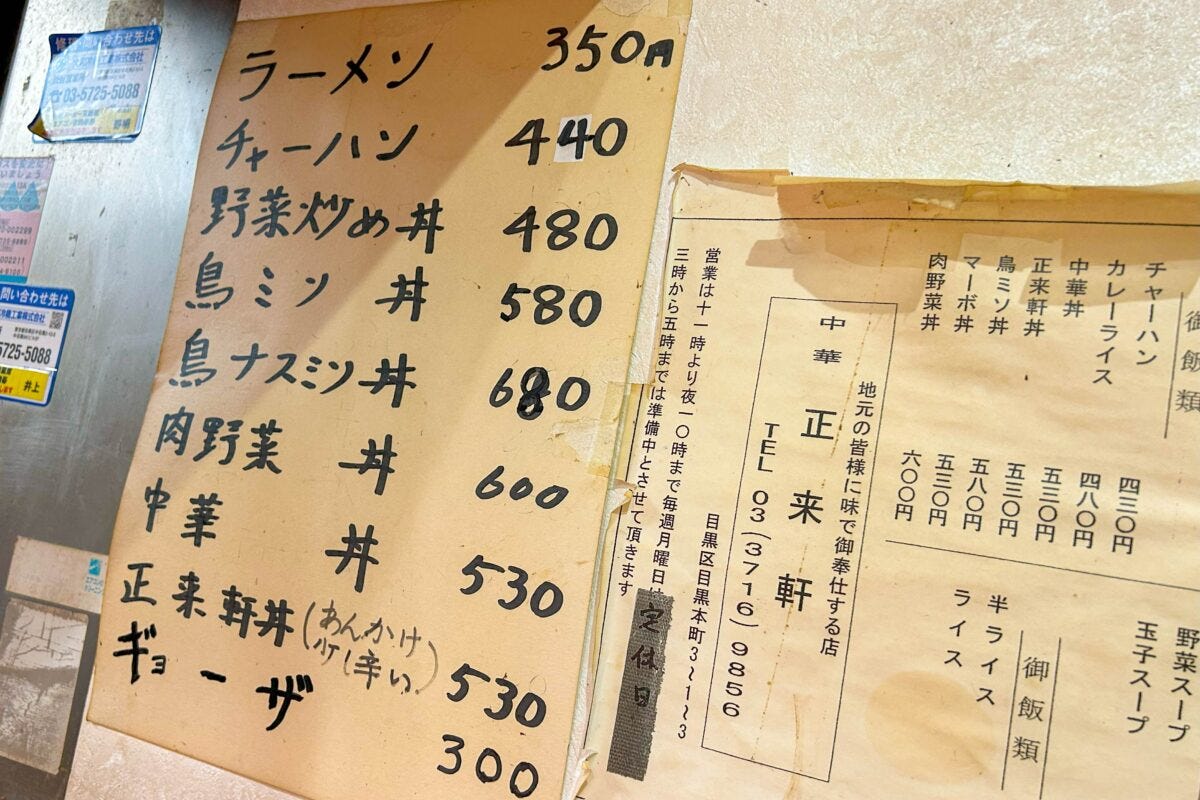 ラーメン 350円
チャーハン 440
野菜炒め丼 480
鳥ミソ丼 580
鳥ナスミソ丼 680
肉野菜丼 600
中華丼 530
正来軒丼(あんかけ 少し辛い) 530
ギョーザ 300
御飯類
チャーハン 四三〇円
カレーライス 四八〇円
中華丼 五三〇円
正来軒丼 五三〇円
鳥ミソ丼 五八〇円
マーボ丼 五三〇円
肉野菜丼 六〇〇円
野菜スープ
玉子スープ
御飯類
半ライス
ライス
地元の皆様に味で御奉仕する店
中華 正来軒
TEL 03(3716)9856
目黒区目黒本町3~1~3
営業は十一時より夜一〇時まで毎週月曜日は定休日
三時から五時までは準備中とさせて頂きます
修理・問い合わせ先は
☎03-5725-5088
野嶋
問い合わせ先は
冷機工業株式会社
5725-5088
井上